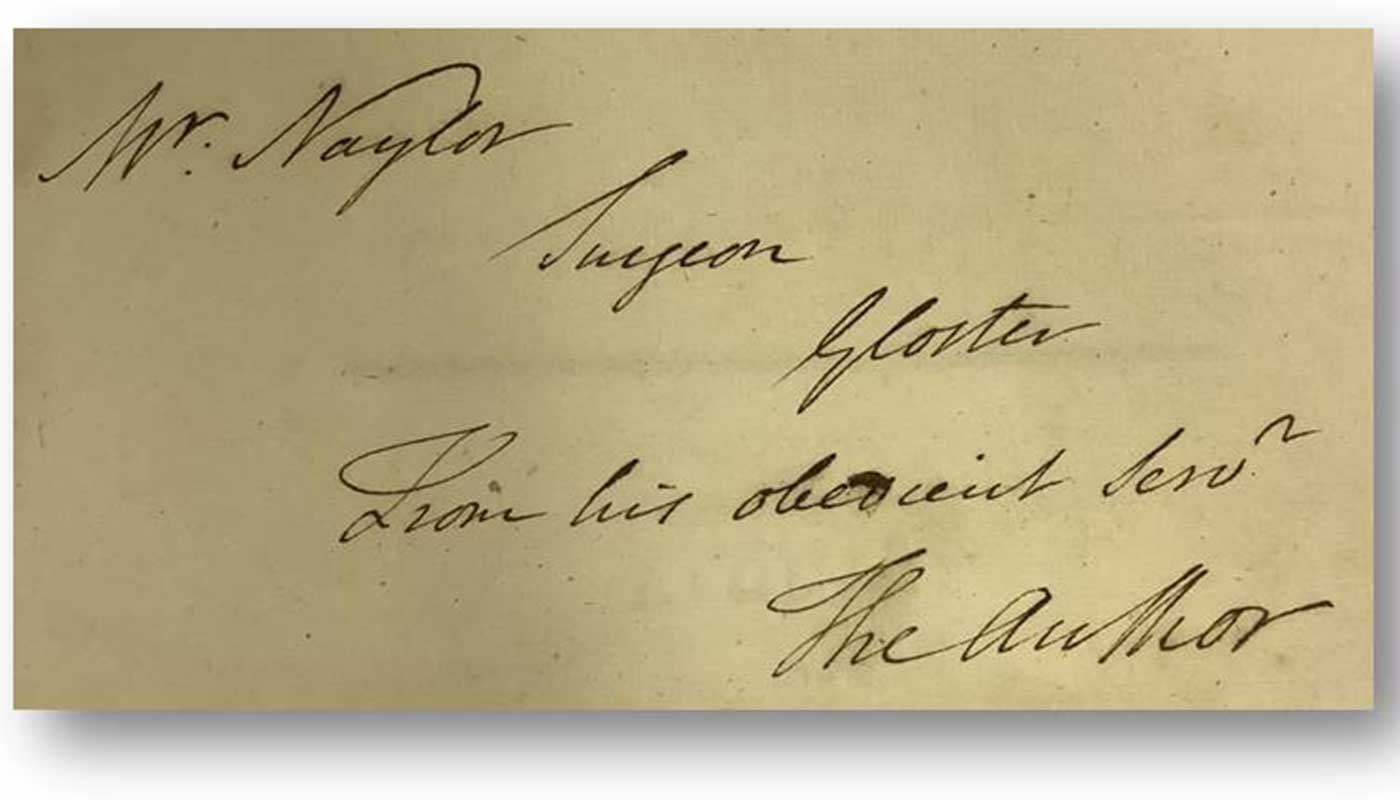 Mr. Naylor
Surgeon
Gloster
From his obedient Servt
The Author